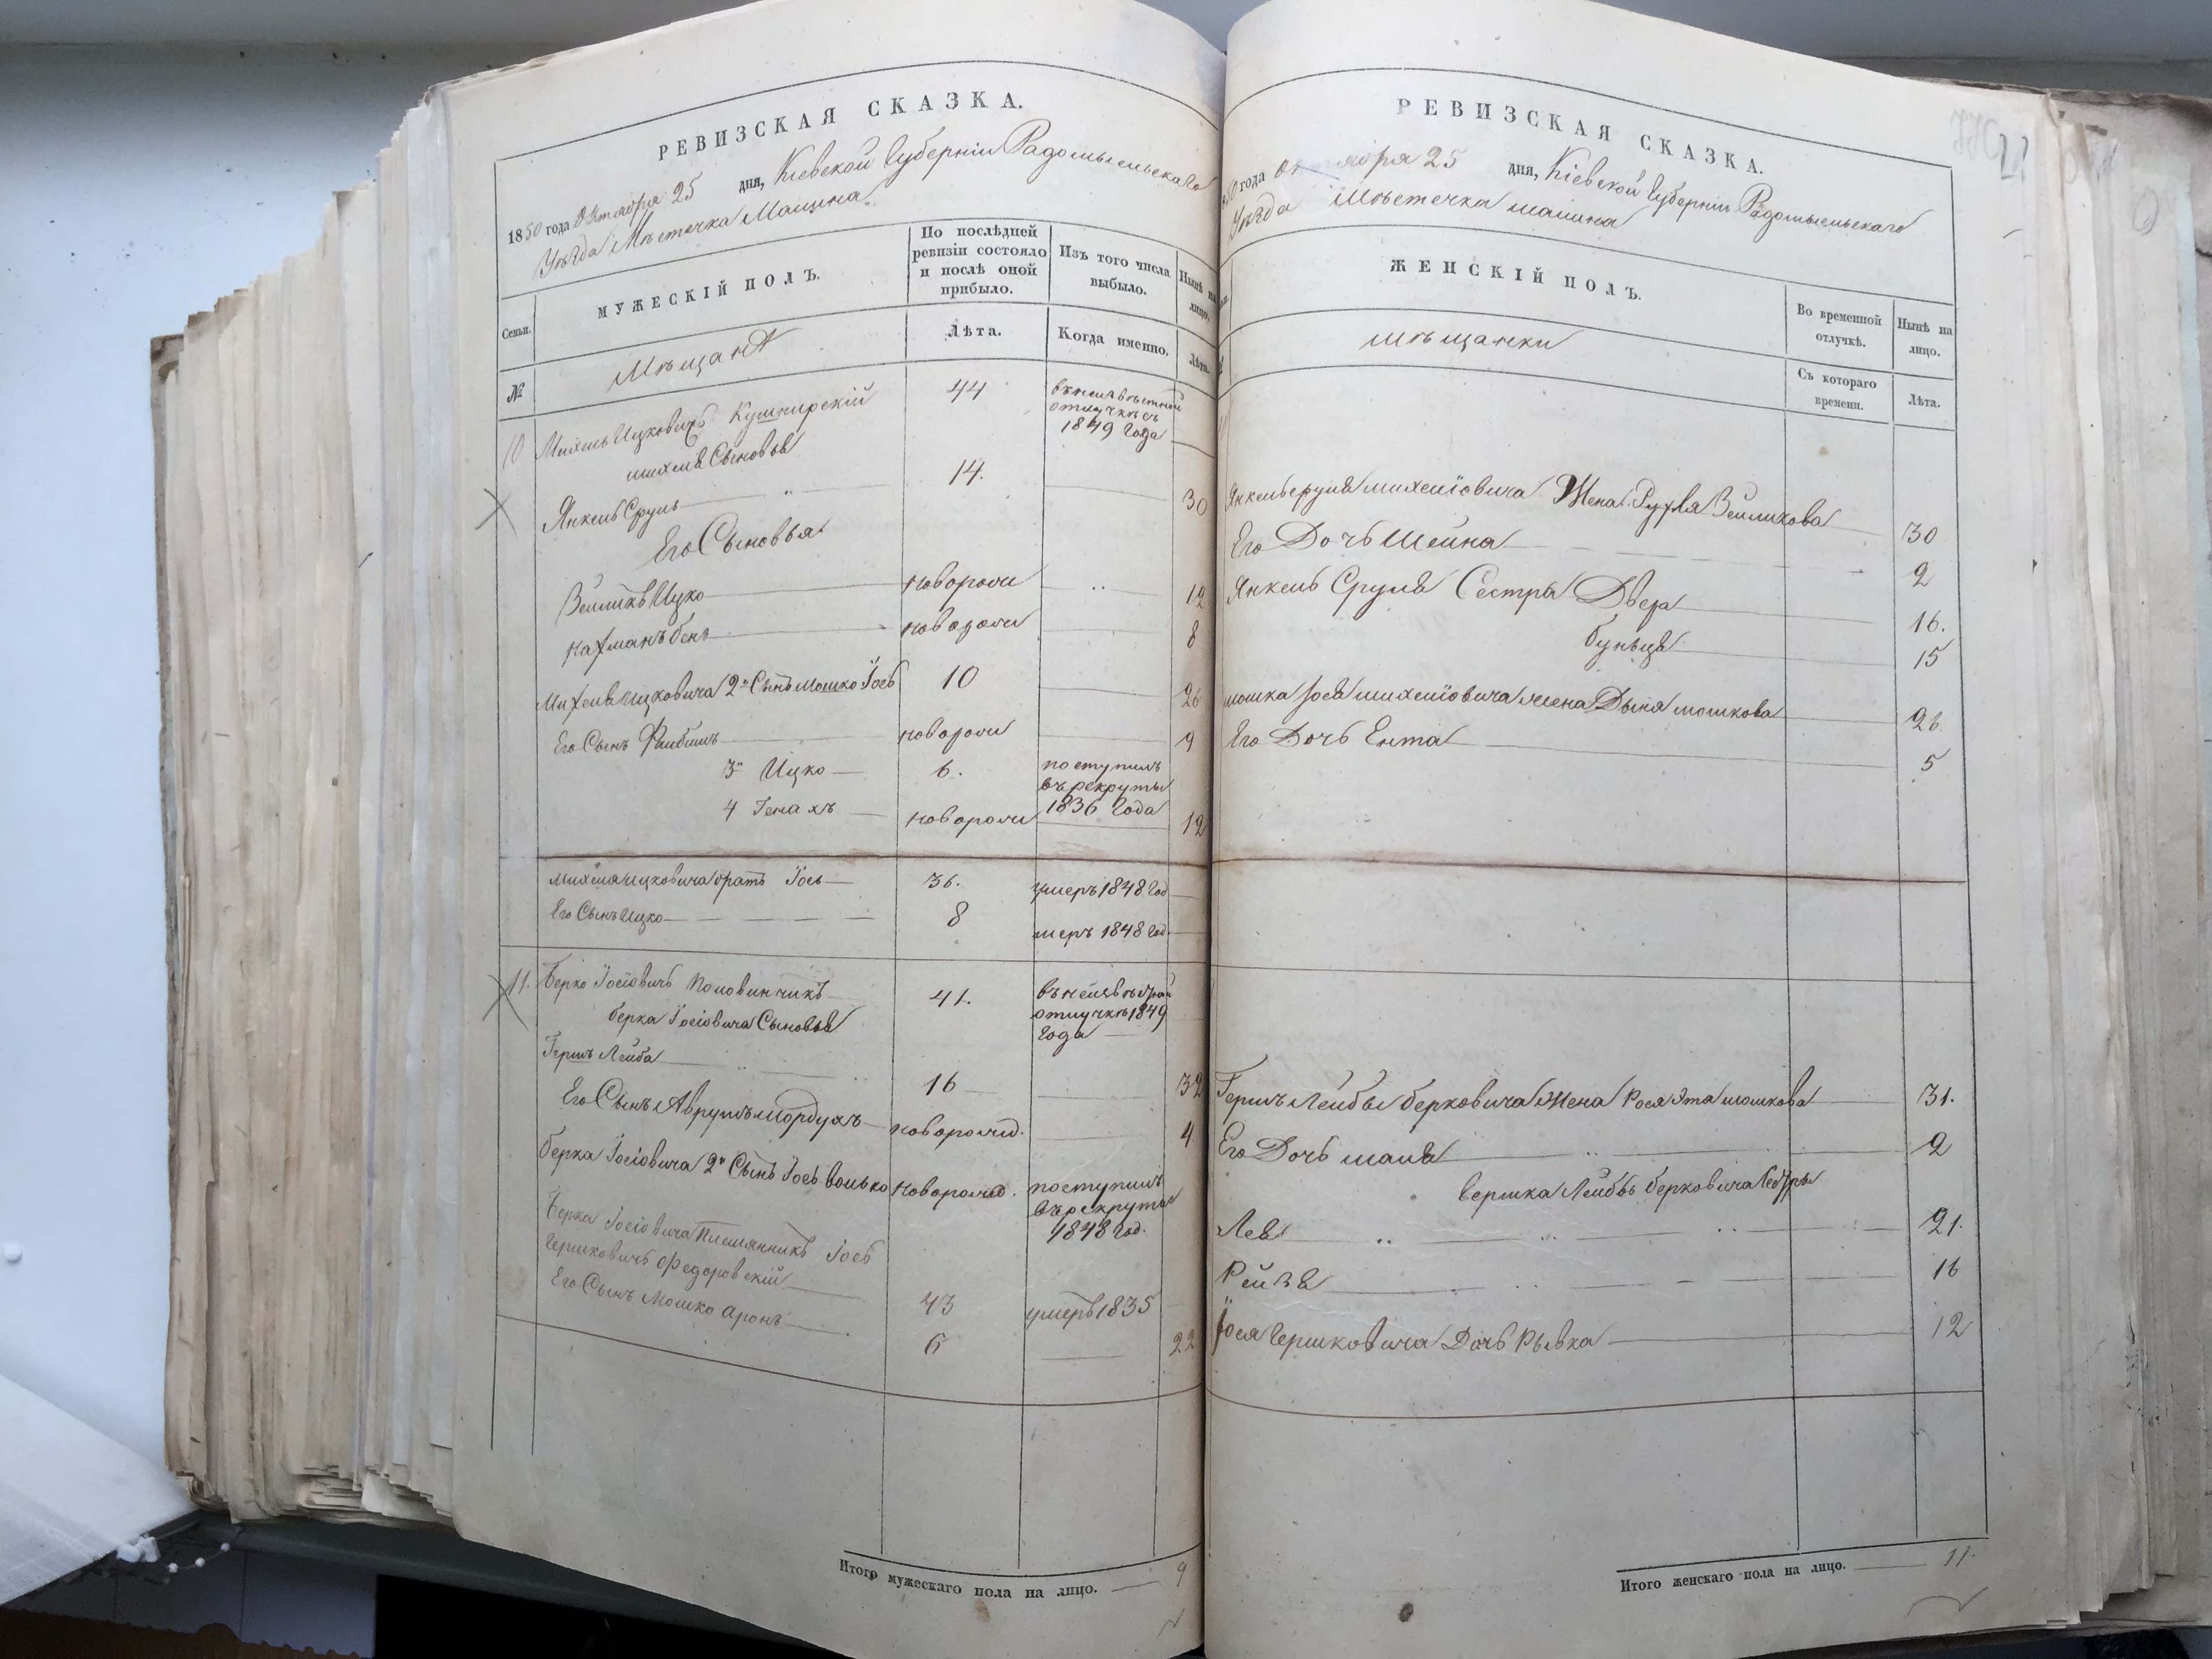 РЕВИЗСКАЯ СКАЗКА.
1850 года Октября 25 дня, Кіевской Губерніи Радомысльскаго
Уѣзда Мѣстечка Малина
Семьи.
МУЖЕСКІЙ ПОЛЪ.
По послѣдней ревизіи состояло и послѣ оной прибыло.
Изъ того числа выбыло.
Нынѣ на лицо.
№
Мѣщанъ
Лѣта.
Когда именно.
Лѣта.
10 Михель Ицковичъ Кушнирскій 44 въ неизвѣстной
отлучкѣ съ
1849 года
Михеля Сыновья
Янкель Сруль 14. 30
Его Сыновья
Зейликъ Ицко новорож 12
Нахманъ Бенъ новорож 8
Михеля Ицковича 2й Сынъ Мошко Іось 10 26
Его Сынъ Файбишъ новорож 9
3й Ицко 6. поступилъ
въ рекруты
1836 года
4 Генахъ новорож 12
Михеля Ицковича братъ Іось 36. умеръ 1848 год
Его Сынъ Ицко 8 умеръ 1848 год.
11. Берко Іосіовичъ Половинчикъ 41. въ неизвѣстной
отлучкѣ 1849
года
Берка Іосіовича Сыновья
Гершъ Лейба 16 32
Его Сынъ Аврумъ Мордухъ новорожд. 4
Берка Іосіовича 2й Сынъ Іось Волько новорожд. поступилъ
въ рекруты
1848 год.
Берка Іосіовича Племянникъ Іось
Гершковичъ Федоровскій 43 умеръ 1835
Его Сынъ Мошко Аронъ 6 22
Итого мужескаго пола на лицо. 9
РЕВИЗСКАЯ СКАЗКА.
1850 года Октября 25 дня, Кіевской Губерніи Радомысльскаго
Уѣзда Мѣстечка Малина
ЖЕНСКІЙ ПОЛЪ.
Во временной отлучкѣ.
Нынѣ на лицо.
Мѣщанки
Съ котораго времени.
Лѣта.
Янкель Сруля Михеліовича Жена Рухля Зейликова 30
Его Дочь Шейна 2
Янкель Сруля Сестра Двера 16.
Буньця 15
Мошка Іося Михеліовича жена Дыня Мошкова 26
Его Дочь Ента 5
Гершъ Лейбы Берковича Жена Рося Эта Мошкова 31.
Его Дочь Маля 2
Гершка Лейбъ Берковича Сестры
Лея 21.
Рейзя 16
Іося Гершковича Дочь Рывка 12
Итого женскаго пола на лицо. 11.